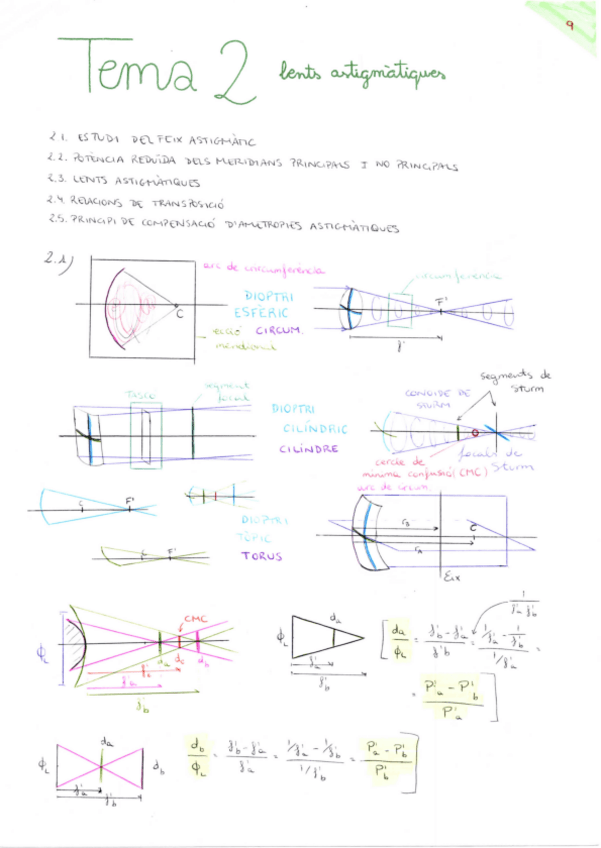 9
Tema 2 lents astigmàtiques
2.1. ESTUDI DEL FEIX ASTIGMÀTIC
2.2. POTÈNCIA REDUÏDA DELS MERIDIANS PRINCIPALS I NO PRINCIPALS
2.3. LENTS ASTIGMÀTIQUES
2.4. RELACIONS DE TRANSPOSICIÓ
2.5. PRINCIPI DE COMPENSACIÓ D'AMETROPIES ASTIGMÀTIQUES
2.1)
arc de circumferència
C
DIOPTRI
ESFÈRIC
CIRCUM.
secció
meridional
circumferència
F'
f'
TASCÓ
segment
focal
DIOPTRI
CILÍNDRIC
CILINDRE
CONOIDE DE
STURM
segments de
Sturm
focals de
Sturm
cercle de
mínima confusió (CMC)
arc de circum.
C F'
C F'
DIOPTRI
TÒRIC
TORUS
r_B
r_A
C
Eix
ϕ_L
CMC
d_a d_c d_b
f'_c
f'_a
f'_b
ϕ_L
d_a
f'_a
f'_b
[ d_a/ϕ_L = (f'_b - f'_a)/f'_b = (1/f'_a - 1/f'_b)/(1/f'_a) =
1/(f'_a f'_b)
= (P'_a - P'_b)/P'_a ]
ϕ_L
d_a
d_b
f'_a
f'_b
d_b/ϕ_L = (f'_b - f'_a)/f'_a = (1/f'_a - 1/f'_b)/(1/f'_b) = (P'_a - P'_b)/P'_b ]